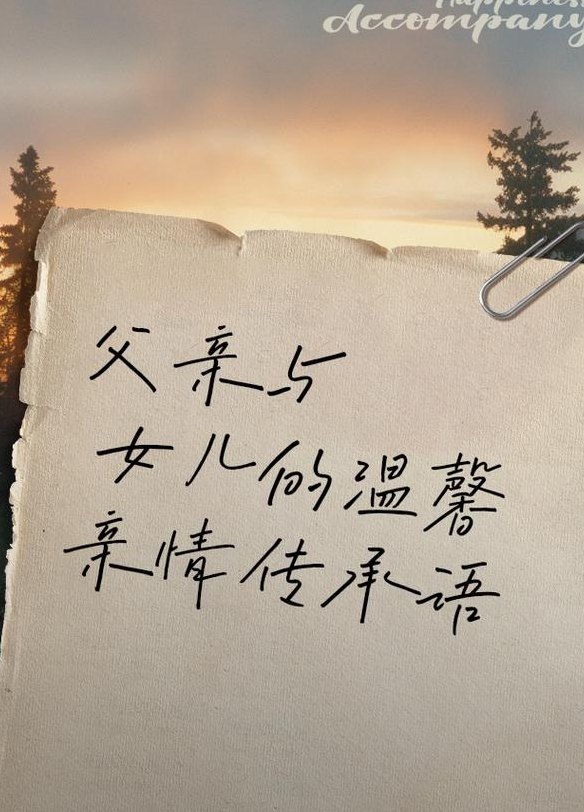 Happiness
Accompany
父亲与
女儿的温馨
亲情传承语